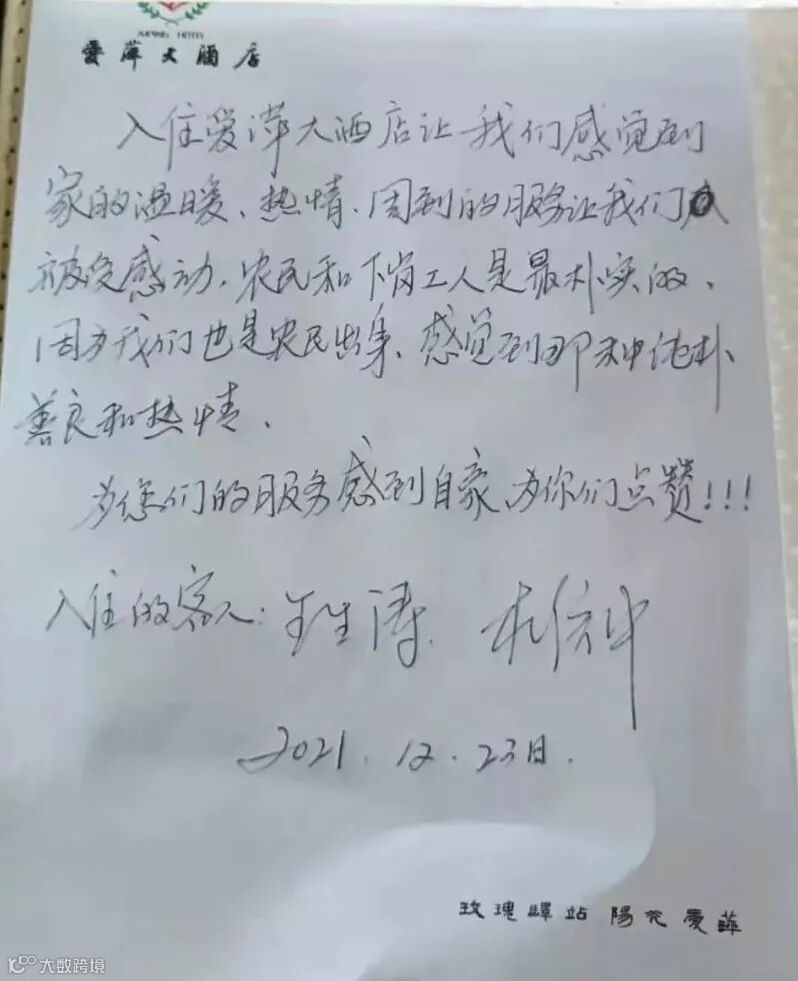 AIPING HOTEL
愛萍大酒店
入住爱萍大酒店让我们感觉到
家的温暖、热情、周到的服务让我们
被受感动。农民和下岗工人是最朴实的、
因为我们也是农民出身、感觉到那种纯朴
善良和热情、
为您们的服务感到自豪、为你们点赞!!!
入住的客人:
2021.12.23日.
玫瑰驛站 陽光愛萍
大数跨境